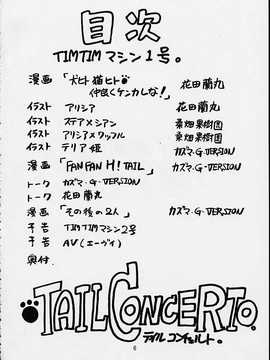 目次
TIMTIM マシン1号。
漫画 「犬ヒト猫ヒト 仲良くケンカしな!」 花田蘭丸
イラスト アリシア 花田蘭丸
イラスト ステア×シアン 桑畑果樹園
イラスト アリシア×ワッフル 桑畑果樹園
イラスト テリア姫 カズマ・G-VERSION
漫画 「FAN FAN H! TAIL」 カズマ・G-VERSION
トーク カズマ・G-VERSION
トーク 花田蘭丸
漫画 「その後の2人」 カズマ・G-VERSION
予告 TIMTIMマシン2号
予告 AV(エーヴイ)
奥付.
TAIL CONCERTO.
テイル コンチェルト。
6